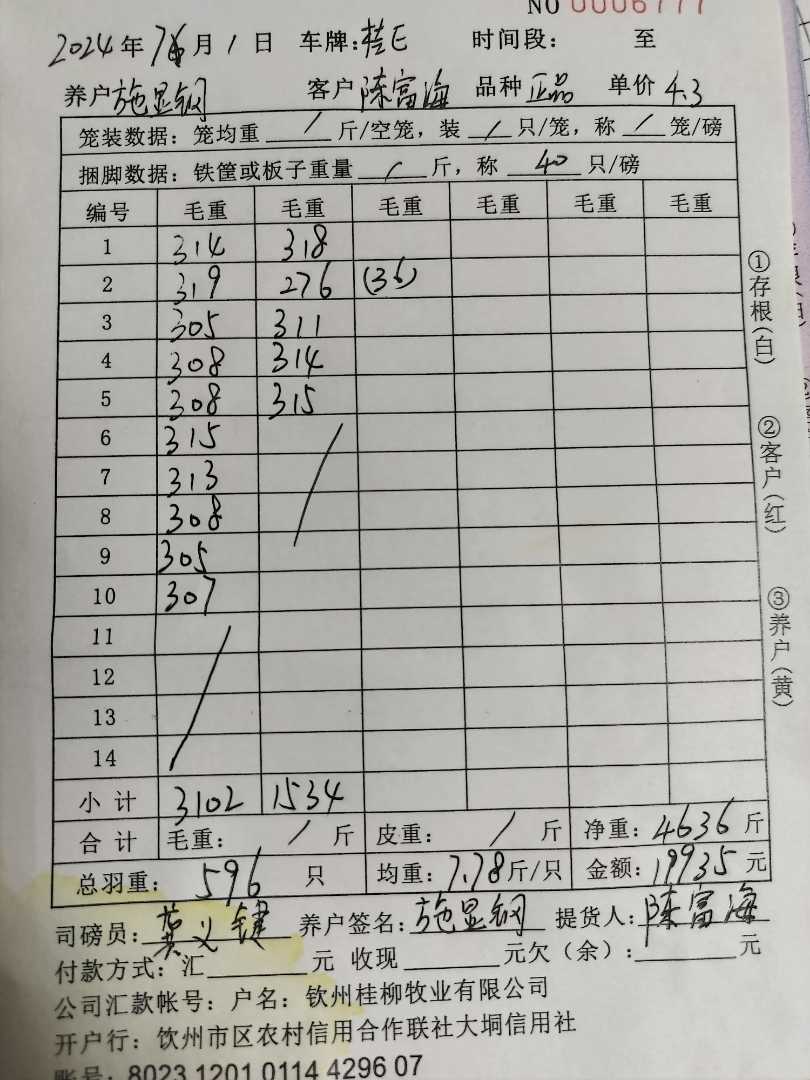 NO 0006777
2024年7月1日 车牌:桂E 时间段: 至
养户施显钢 客户陈富海 品种正品 单价4.3
笼装数据:笼均重/斤/空笼,装/只/笼,称/笼/磅
捆脚数据:铁筐或板子重量/斤,称40只/磅
编号 毛重 毛重 毛重 毛重 毛重 毛重
1 314 318
2 319 276 (36)
3 305 311
4 308 314
5 308 315
6 315
7 313
8 308
9 305
10 307
11
12
13
14
小计 3102 1534
合计 毛重:/斤 皮重:/斤 净重:4636斤
总羽重:596只 均重:7.78斤/只 金额:19935元
司磅员:莫义键 养户签名:施显钢 提货人:陈富海
付款方式:汇 元 收现 元欠(余): 元
公司汇款帐号:户名:钦州桂柳牧业有限公司
开户行:饮州市区农村信用合作联社大垌信用社
账号:8023 1201 0114 4296 07
①存根(白)
②客户(红)
③养户(黄)